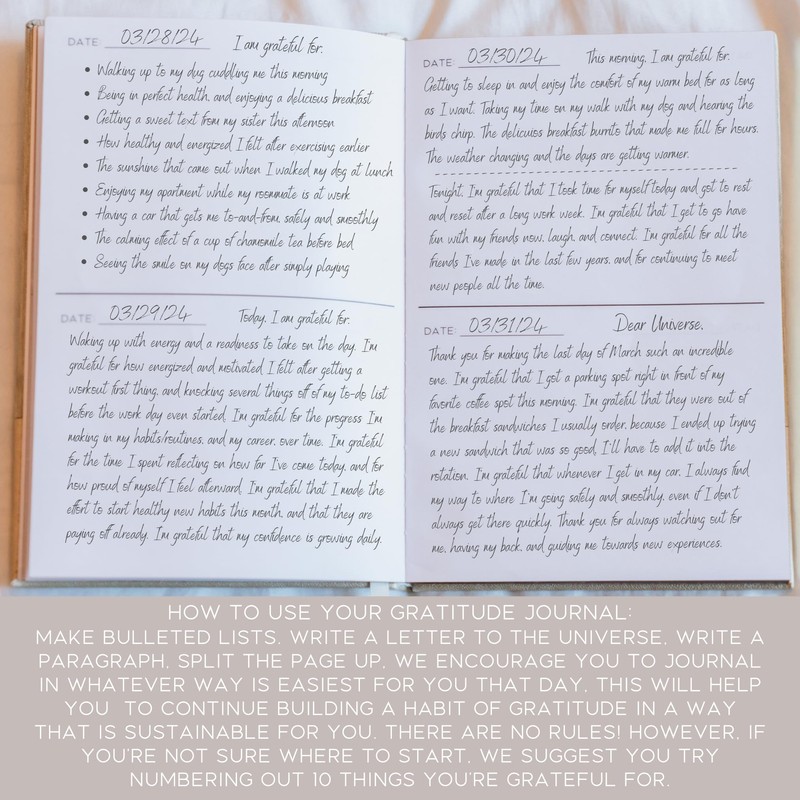 DATE: 03/28/24 I am grateful for:
• Waking up to my dog cuddling me this morning
• Being in perfect health, and enjoying a delicious breakfast
• Getting a sweet text from my sister this afternoon
• How healthy and energized I felt after exercising earlier
• The sunshine that came out when I walked my dog at lunch
• Enjoying my apartment while my roommate is at work
• Having a car that gets me to-and-from safely and smoothly
• The calming effect of a cup of chamomile tea before bed
• Seeing the smile on my dogs face after simply playing
DATE: 03/29/24 Today, I am grateful for:
Waking up with energy and a readiness to take on the day. I'm
grateful for how energized and motivated I felt after getting a
workout first thing, and knocking several things off of my to-do list
before the work day even started. I'm grateful for the progress I'm
making in my habits/routines, and my career, over time. I'm grateful
for the time I spent reflecting on how far I've come today, and for
how proud of myself I feel afterward. I'm grateful that I made the
effort to start healthy new habits this month, and that they are
paying off already. I'm grateful that my confidence is growing daily.
DATE: 03/30/24 This morning, I am grateful for:
Getting to sleep in and enjoy the comfort of my warm bed for as long
as I want. Taking my time on my walk with my dog and hearing the
birds chirp. The delicuios breakfast burrito that made me full for hours.
The weather changing and the days are getting warmer.
Tonight, I'm grateful that I took time for myself today and got to rest
and reset after a long work week. I'm grateful that I get to go have
fun with my friends now, laugh, and connect. I'm grateful for all the
friends I've made in the last few years, and for continuing to meet
new people all the time.
DATE: 03/31/24 Dear Universe,
Thank you for making the last day of March such an incredible
one. I'm grateful that I got a parking spot right in front of my
favorite coffee spot this morning. I'm grateful that they were out of
the breakfast sandwiches I usually order, because I ended up trying
a new sandwich that was so good, I'll have to add it into the
rotation. I'm grateful that whenever I get in my car, I always find
my way to where I'm going safely and smoothly, even if I don't
always get there quickly. Thank you for always watching out for
me, having my back, and guiding me towards new experiences.
HOW TO USE YOUR GRATITUDE JOURNAL:
MAKE BULLETED LISTS, WRITE A LETTER TO THE UNIVERSE, WRITE A
PARAGRAPH, SPLIT THE PAGE UP, WE ENCOURAGE YOU TO JOURNAL
IN WHATEVER WAY IS EASIEST FOR YOU THAT DAY, THIS WILL HELP
YOU TO CONTINUE BUILDING A HABIT OF GRATITUDE IN A WAY
THAT IS SUSTAINABLE FOR YOU. THERE ARE NO RULES! HOWEVER, IF
YOU'RE NOT SURE WHERE TO START, WE SUGGEST YOU TRY
NUMBERING OUT 10 THINGS YOU'RE GRATEFUL FOR.